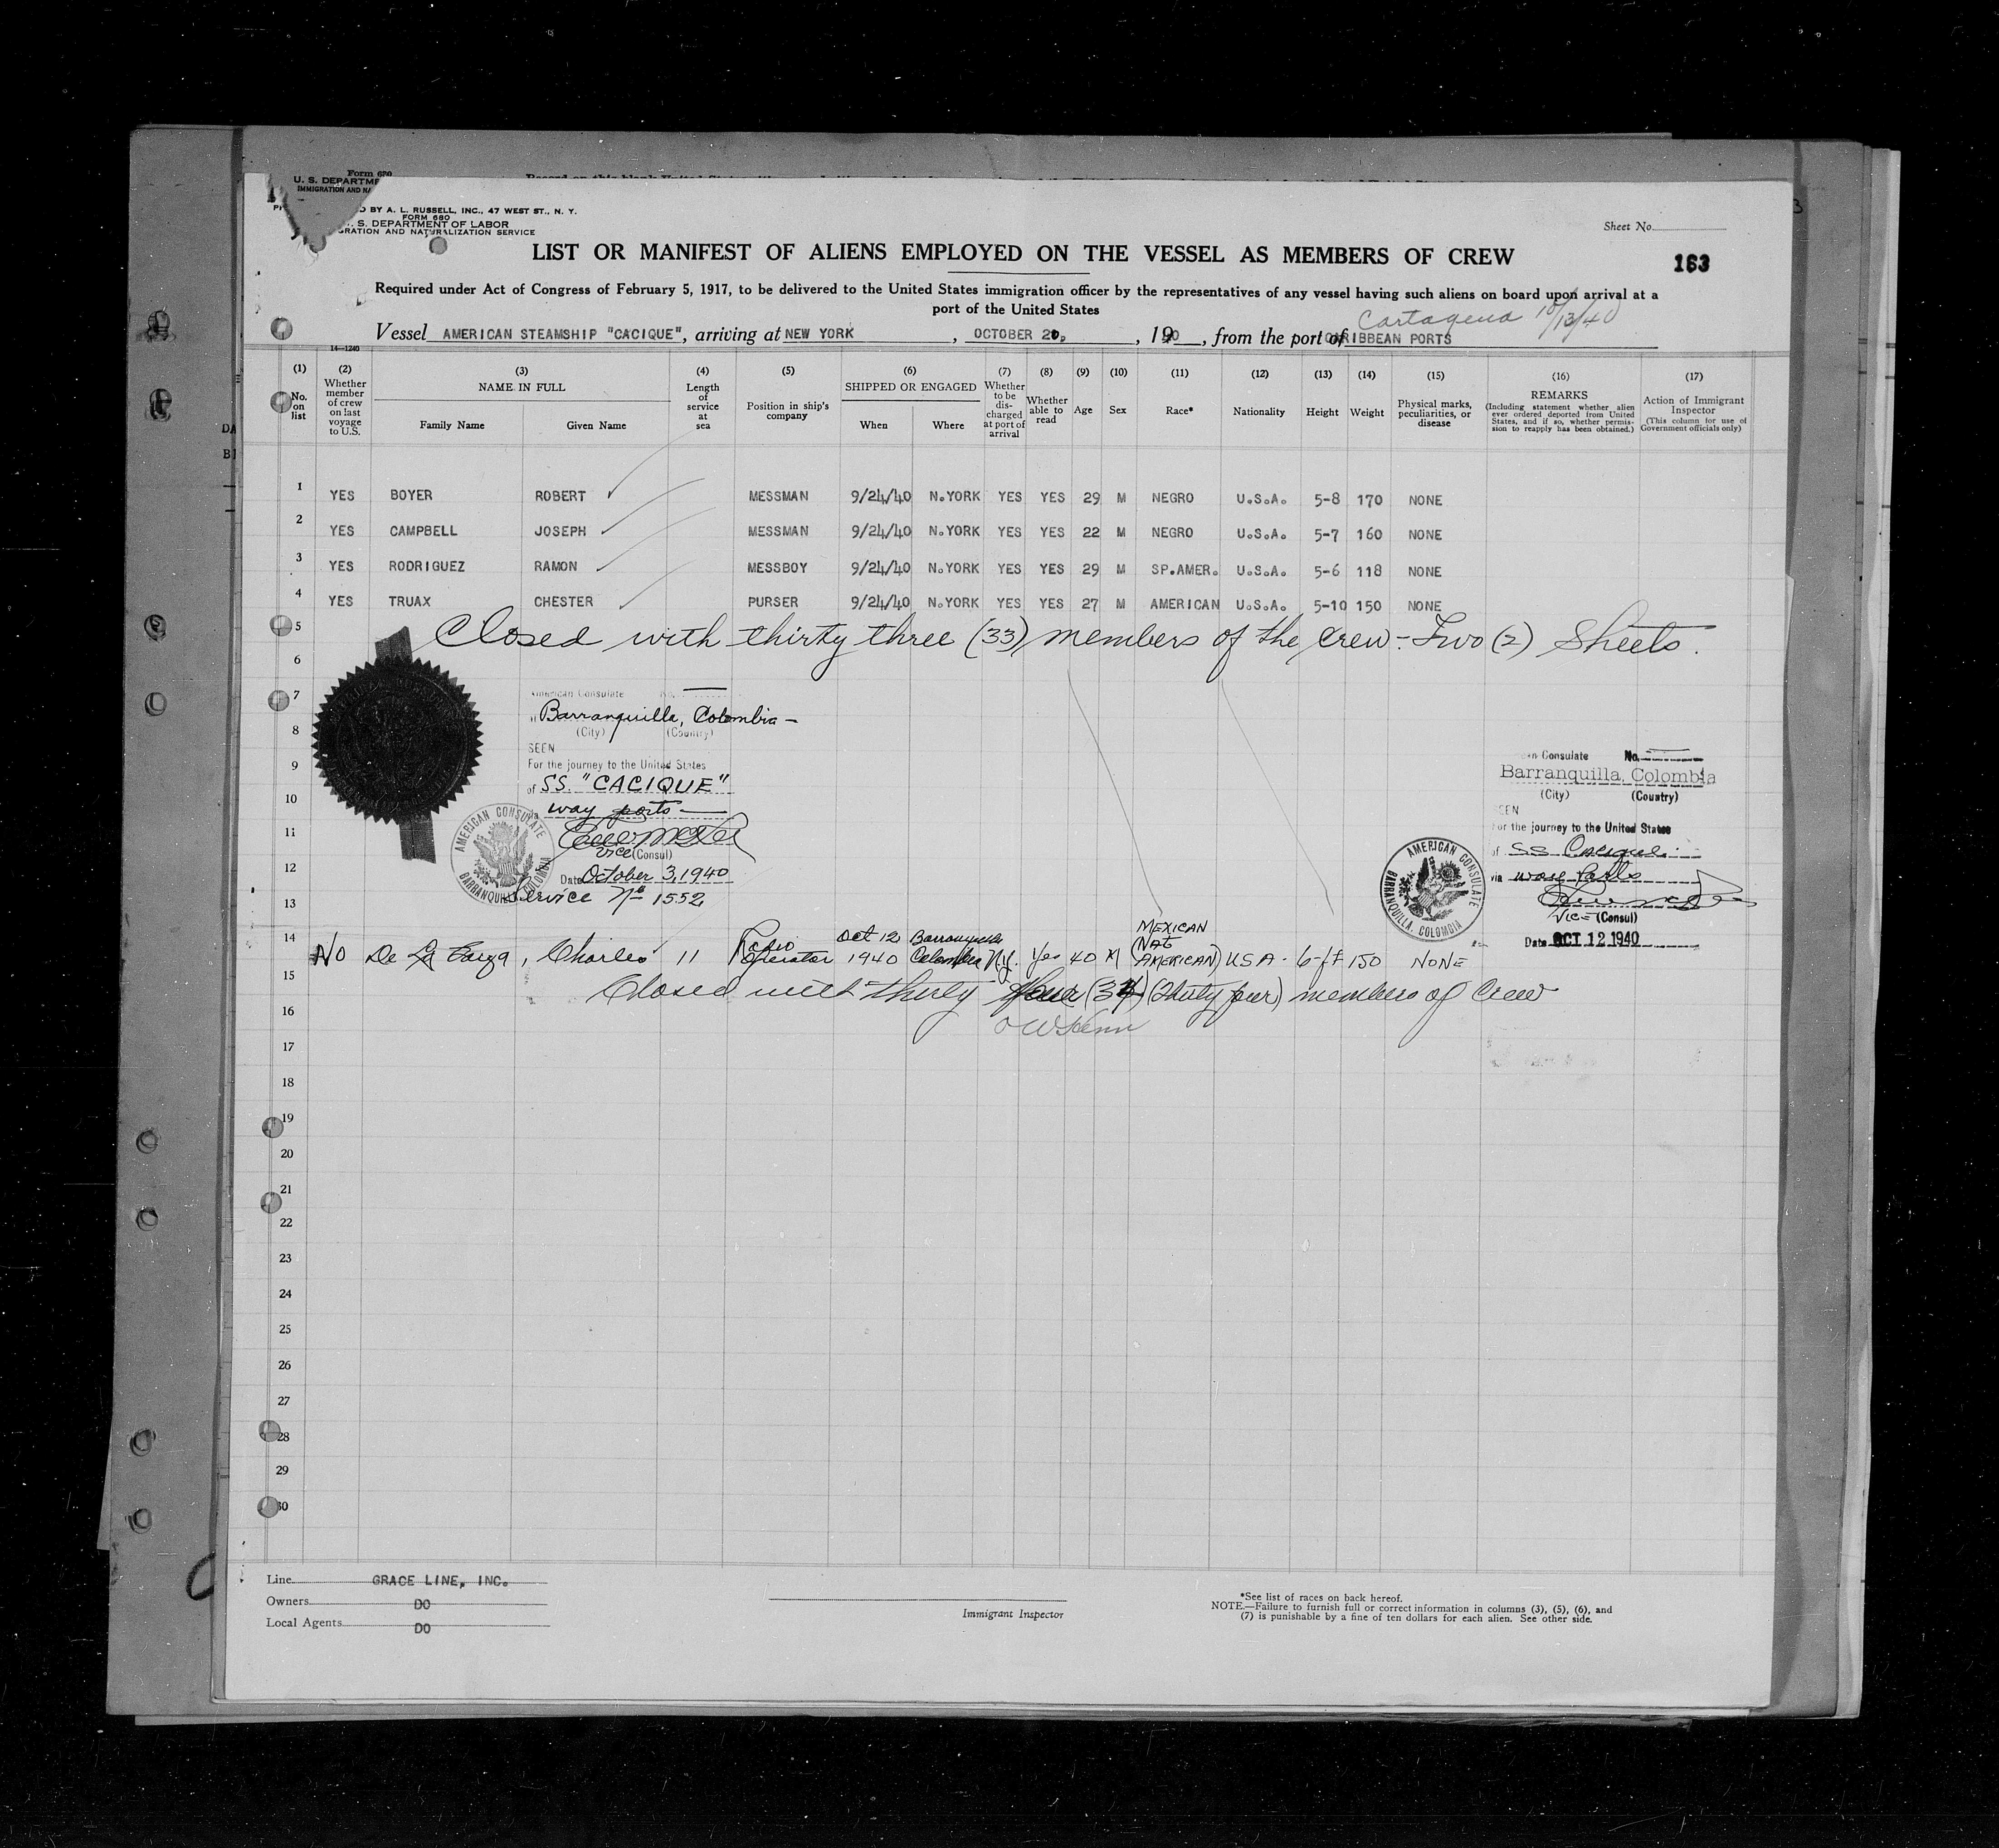 Form 680
U. S. DEPARTME
IMMIGRATION AND NA
D BY A. L. RUSSELL, INC., 47 WEST ST., N. Y.
FORM 680
. S. DEPARTMENT OF LABOR
GRATION AND NATURALIZATION SERVICE
Sheet No.
LIST OR MANIFEST OF ALIENS EMPLOYED ON THE VESSEL AS MEMBERS OF CREW
163
Required under Act of Congress of February 5, 1917, to be delivered to the United States immigration officer by the representatives of any vessel having such aliens on board upon arrival at a
port of the United States
Cartagena 10/13/40
Vessel AMERICAN STEAMSHIP "CACIQUE", arriving at NEW YORK, OCTOBER 20, 1940, from the port of CARIBBEAN PORTS
14—1240
(1) No. on list
(2) Whether member of crew on last voyage to U.S.
(3) NAME IN FULL Family Name Given Name
(4) Length of service at sea
(5) Position in ship's company
(6) SHIPPED OR ENGAGED When Where
(7) Whether to be discharged at port of arrival
(8) Whether able to read
(9) Age
(10) Sex
(11) Race*
(12) Nationality
(13) Height
(14) Weight
(15) Physical marks, peculiarities, or disease
(16) REMARKS (Including statement whether alien ever ordered deported from United States, and if so, whether permission to reapply has been obtained.)
(17) Action of Immigrant Inspector (This column for use of Government officials only)
1 YES BOYER ROBERT MESSMAN 9/24/40 N.YORK YES YES 29 M NEGRO U.S.A. 5-8 170 NONE
2 YES CAMPBELL JOSEPH MESSMAN 9/24/40 N.YORK YES YES 22 M NEGRO U.S.A. 5-7 160 NONE
3 YES RODRIGUEZ RAMON MESSBOY 9/24/40 N.YORK YES YES 29 M SP.AMER. U.S.A. 5-6 118 NONE
4 YES TRUAX CHESTER PURSER 9/24/40 N.YORK YES YES 27 M AMERICAN U.S.A. 5-10 150 NONE
5 Closed with thirty three (33) members of the Crew - Two (2) Sheets.
6
7
8
9
10
11
12
13
American Consulate No.
Barranquilla, Colombia —
(City) (Country)
SEEN
For the journey to the United States
of SS. "CACIQUE"
way ports
Vice (Consul)
Date October 3, 1940
Service No 1552
AMERICAN CONSULATE
BARRANQUILLA, COLOMBIA
an Consulate No.
Barranquilla, Colombia
(City) (Country)
SEEN
For the journey to the United States
of SS Cacique
via way ports
Vice (Consul)
Date OCT 12 1940
AMERICAN CONSULATE
BARRANQUILLA, COLOMBIA
14 No De La Garza, Charles 11 Radio Operator Oct 12 1940 Barranquilla Colombia N.Y. Yes 40 M MEXICAN (NAT AMERICAN) USA. 6-ft 150 NONE
15 Closed with thirty four (34) (Thirty four) members of Crew
16
17
18
19
20
21
22
23
24
25
26
27
28
29
30
Line GRACE LINE, INC.
Owners DO
Local Agents DO
Immigrant Inspector
*See list of races on back hereof.
NOTE.—Failure to furnish full or correct information in columns (3), (5), (6), and
(7) is punishable by a fine of ten dollars for each alien. See other side.